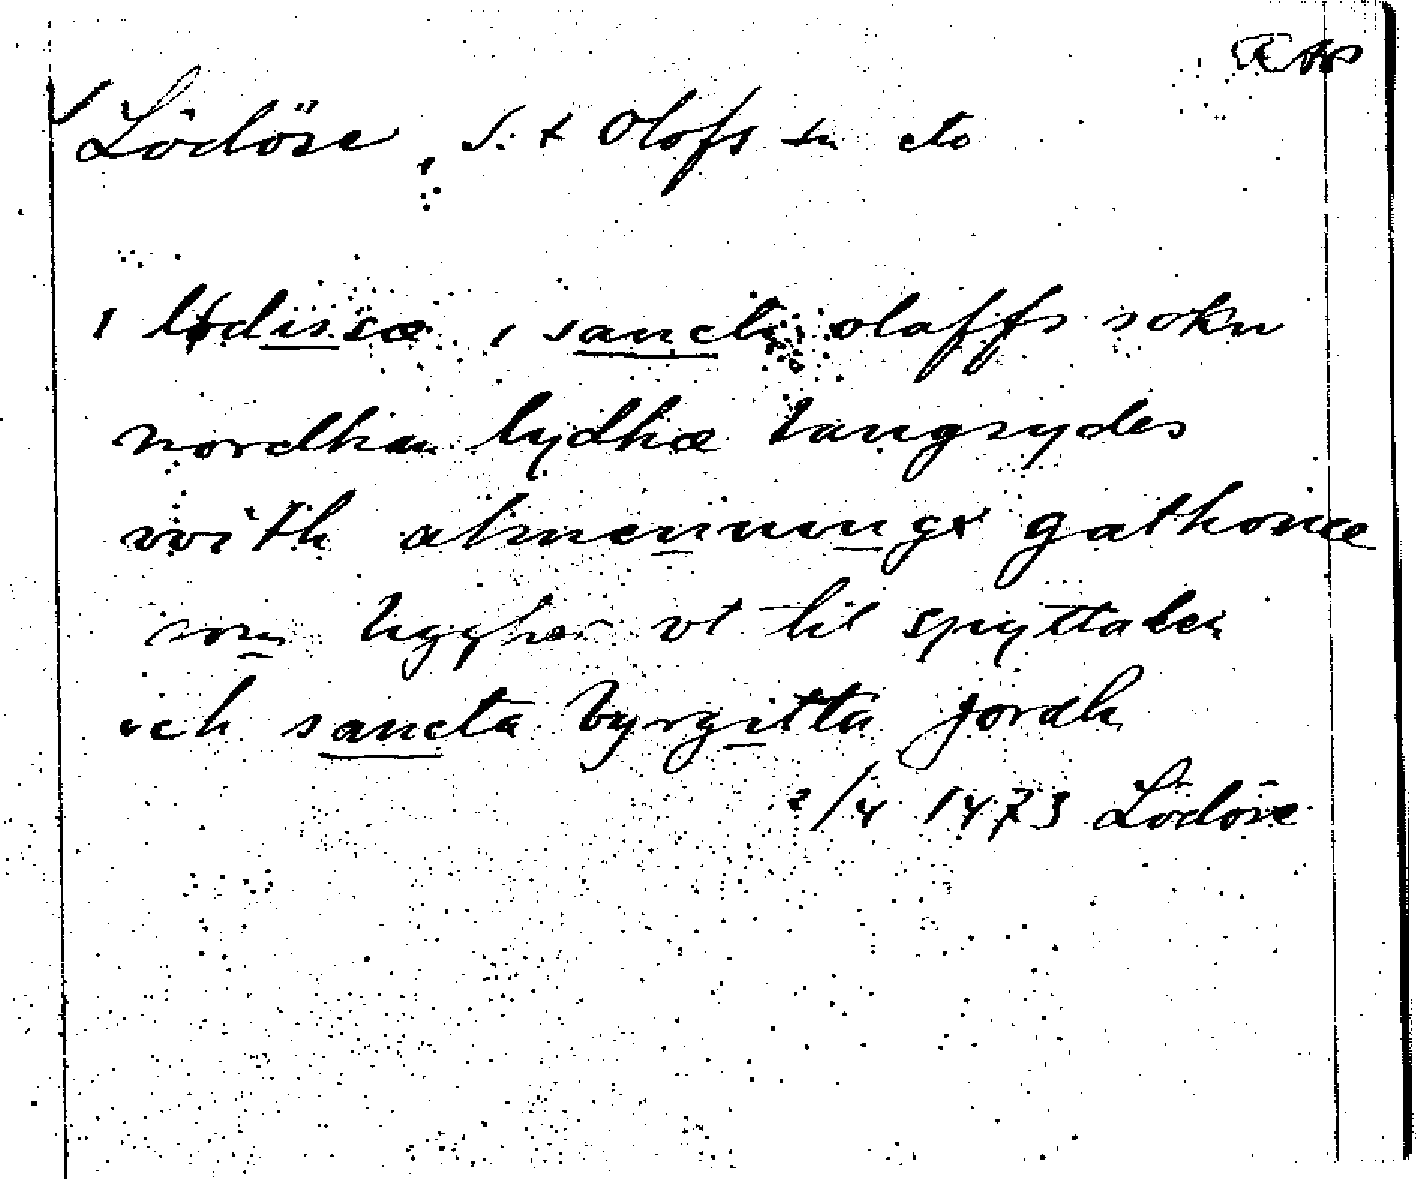 Lödöse, S:t Olofs sn etc
i lødissæ i sancti olaffs sokn
nordhan lydhæ langsydes
widh almennings gathonæ
som liggher vt til spyttalen
och sancta byrgitta jordh
2/4 1473 Lödöse